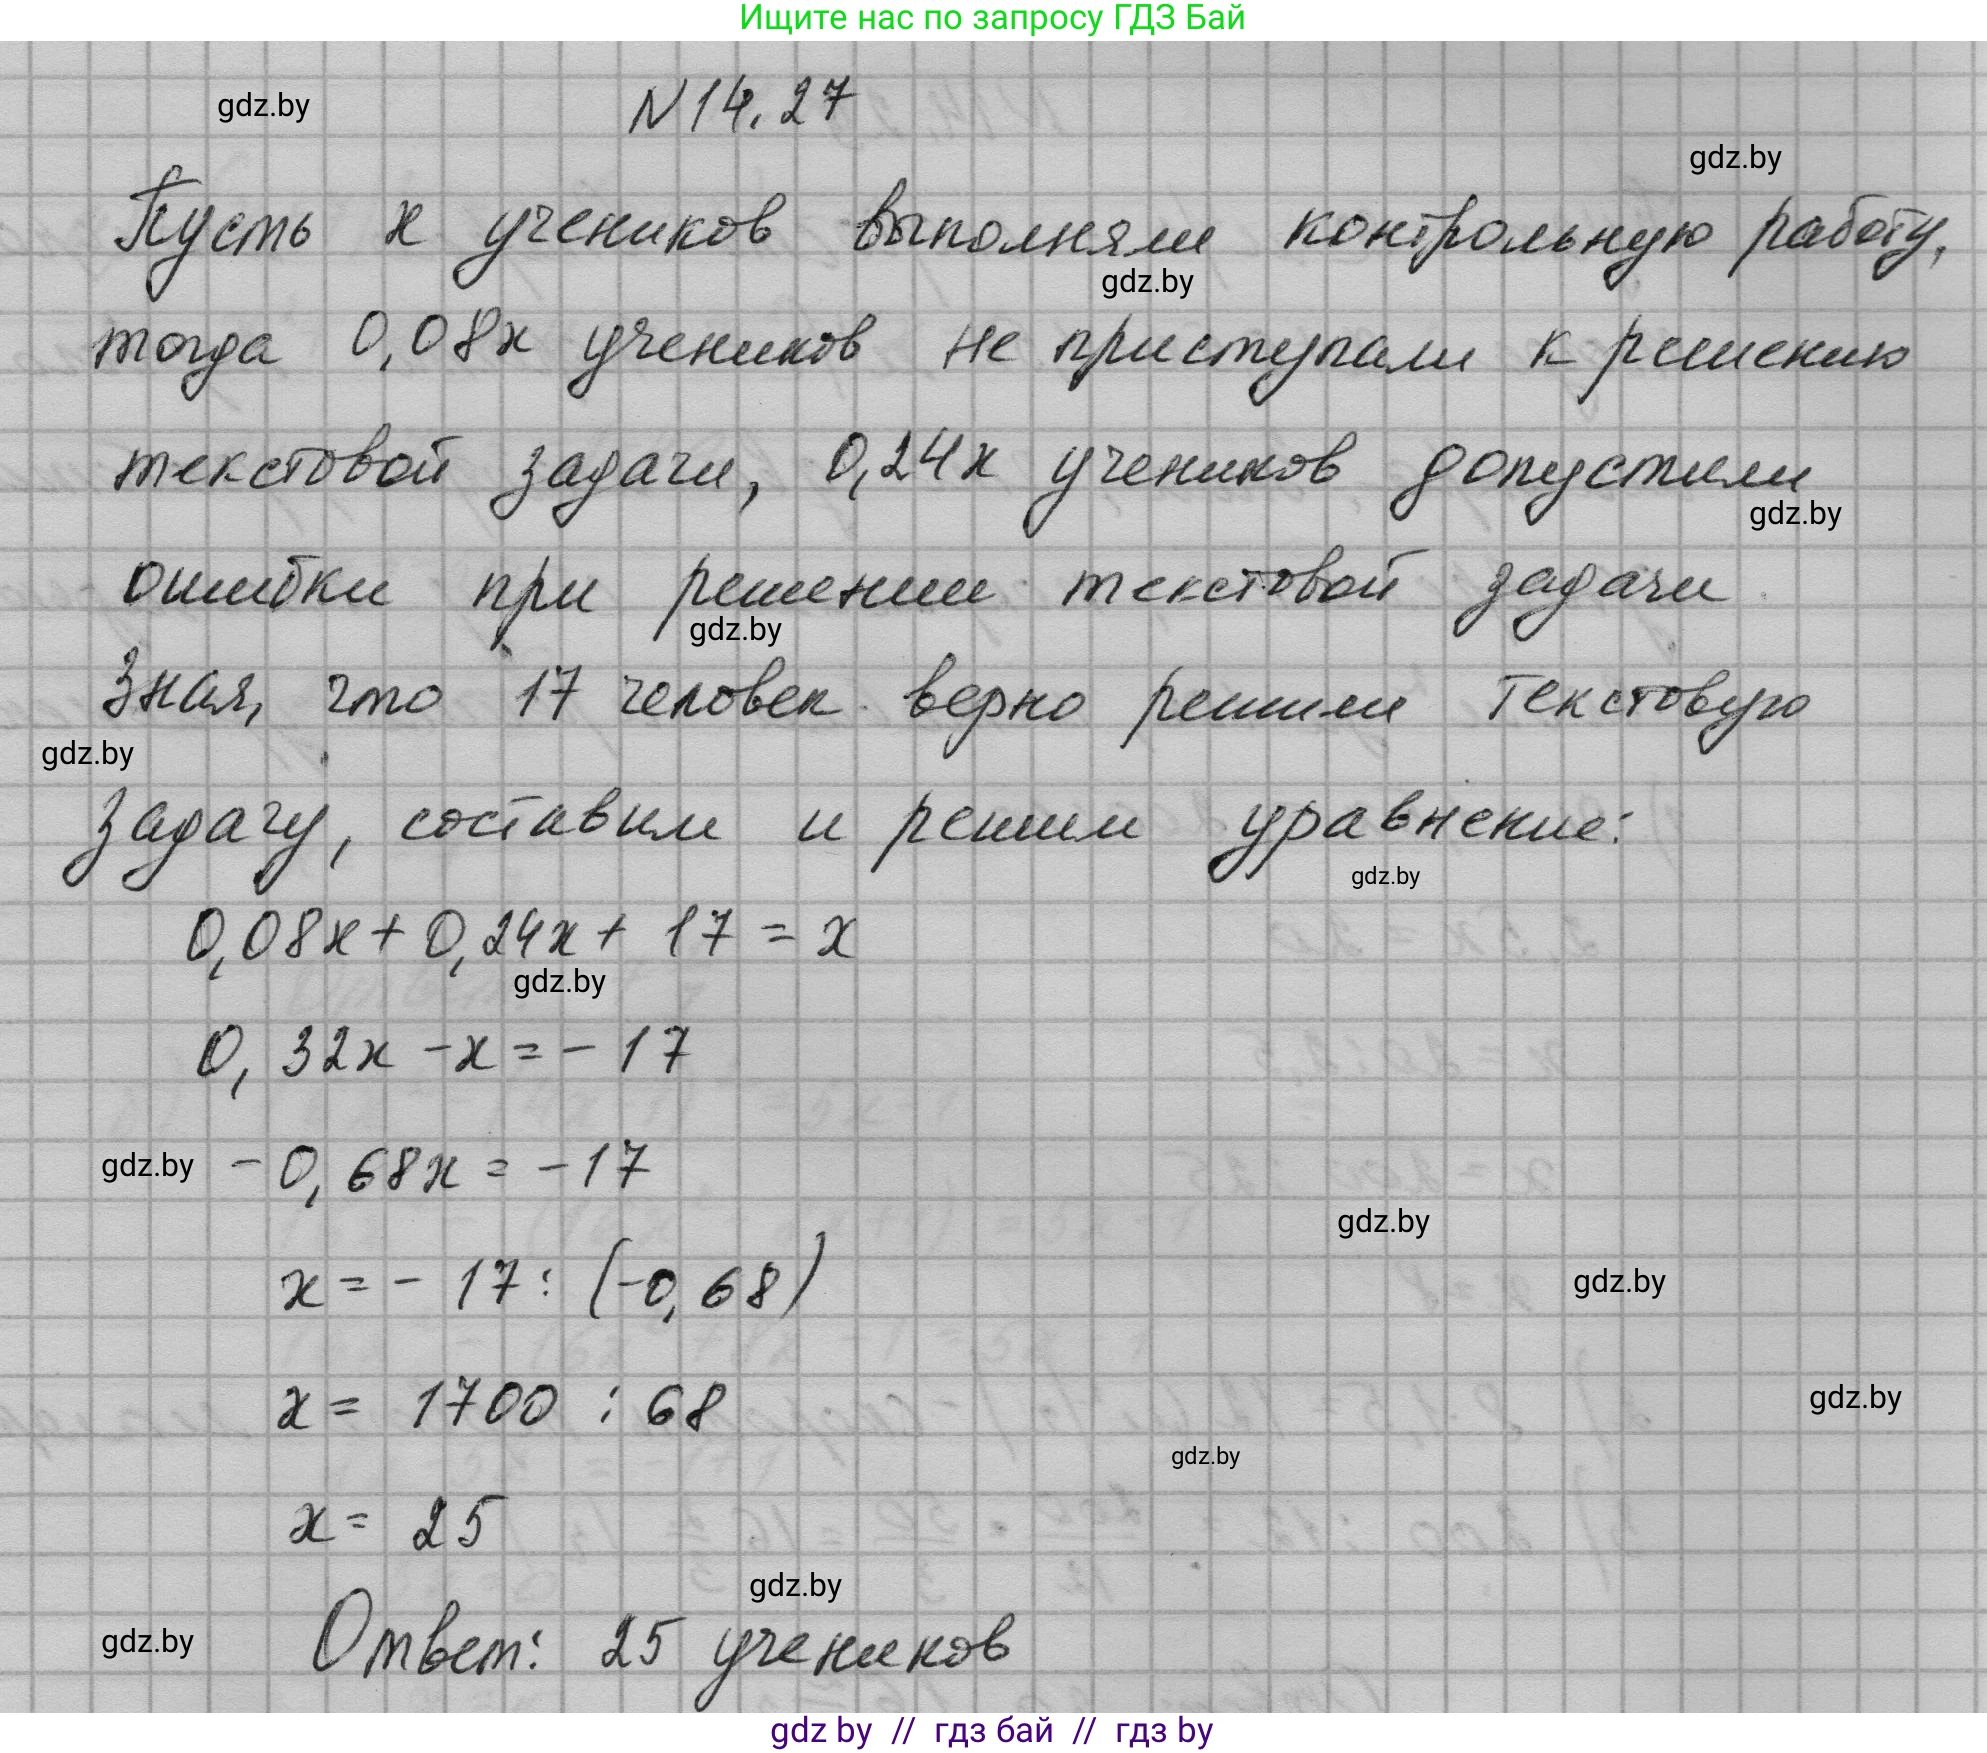 Ищите нас по запросу ГДЗ Бай
N 14.27
gdz.by
gdz.by
Пусть х учеников выполняли контрольную работу,
gdz.by
тогда 0,08х учеников не приступали к решению
текстовой задачи, 0,24х учеников допустили
gdz.by
ошибки при решении текстовой задачи
gdz.by
Зная, что 17 человек верно решили текстовую
gdz.by
задачу, составим и решим уравнение:
gdz.by
0,08х + 0,24х + 17 = х
gdz.by
0,32х - х = - 17
gdz.by
- 0,68х = - 17
gdz.by
х = - 17 : (-0,68)
gdz.by
х = 1700 : 68
gdz.by
gdz.by
х = 25
gdz.by
Ответ: 25 учеников
gdz.by
gdz by // гдз бай // гдз by